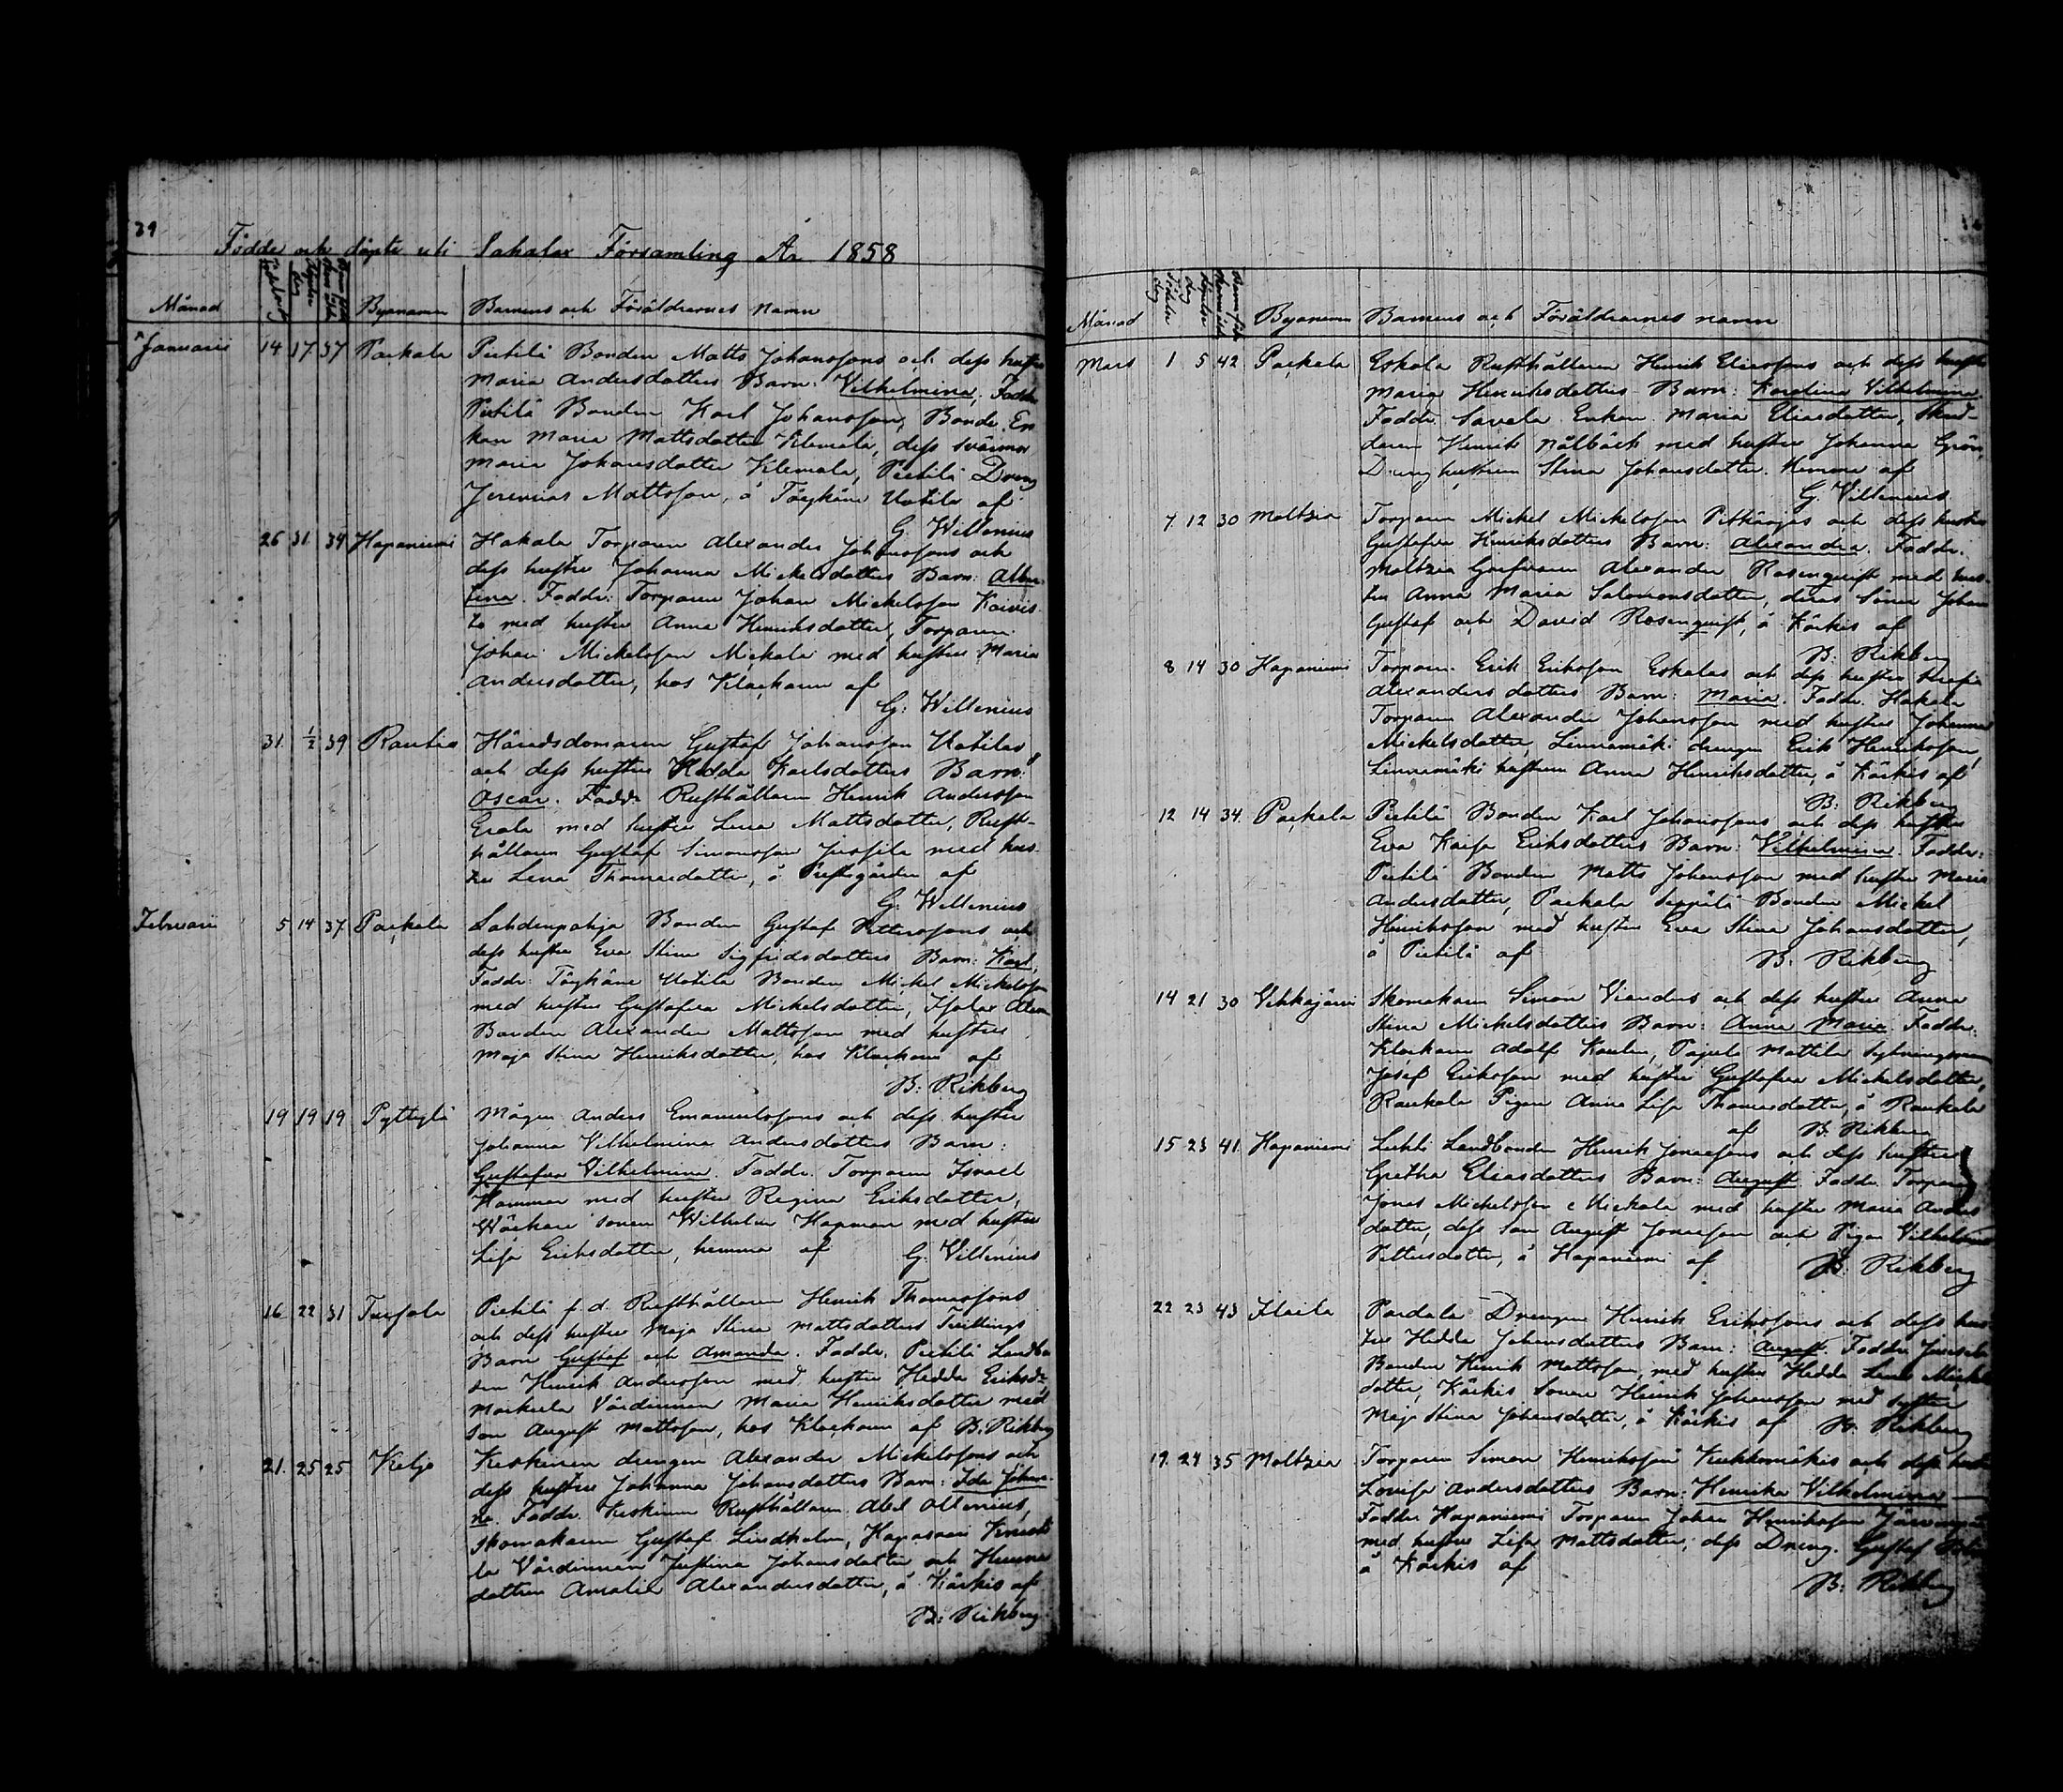 39
Födde och döpte uti Sahalax Församling År 1858
Månad Byanamn Barnens och Föräldrarnes namn
Januarii 14 17 37 Packala Pietilä Bonden Matts Johanssons och dess hustru
Maria Andersdotters Barn: Vilhelmina. Faddr.
Pietilä Bonden Karl Johansson, Bonde En-
kan Maria Mattsdotter Klemola, dess svärmor
Maria Johansdotter Klemola, Pietilä Dreng
Jeremias Mattsson, å Töykäne Uotila af
G. Willenius
26 31 34 Hapaniemi Hakala Torparen Alexander Johanssons och
dess hustru Johanna Mickelsdotters Barn: Alber-
tina. Faddr: Torparen Johan Mickelsson Koivis-
to med hustru Anna Henriksdotter, Torparen
Johan Mickelsson Mickala med hustru Maria
Andersdotter, hos Klockaren af
G: Willenius
31. 1/2 39 Rautia Häradsdomaren Gustaf Johansson Uotilas
och dess hustru Hedda Karlsdotters Barn:
Oscar. Faddr Rusthållaren Henrik Andersson
Erola med hustru Lena Mattsdotter, Rust-
hållaren Gustaf Simonsson Jussila med hus-
tru Lena Thomasdotter, å Prestgården af
G: Willenius
Februarii 5 14 37 Packala Lahdenpohja Bonden Gustaf Pettersons och
dess hustru Eva Stina Sigfridsdotters Barn: Karl,
Faddr: Töykäne Uotila Bonden Mickel Mickelsson
med hustru Gustafva Mickelsdotter,
Bonden Alexander Mattsson med hustru
Maja Stina Henriksdotter, hos Klockaren af
B: Rikberg
19 19 19 Pyttylä Mågen Anders Emanuelssons och dess hustru
Johanna Vilhelmina Andersdotters Barn:
Gustafva Vilhelmina. Faddr. Torparen Israel
Hammar med hustru Regina Eriksdotter,
sonen Wilhelm Hapman med hustru
Lisa Eriksdotter, hemma af G: Villenius
16 22 31 Tursola Pietilä f.d. Rusthållaren Henrik Thomassons
och dess hustru Maja Stina Mattsdotters Tvillings
Barn Gustaf och Amanda. Faddr. Pietilä Landbon-
den Henrik Andersson med hustru Hedda Eriksdr,
Markula Värdinnan Maria Henriksdotter med
son August Mattsson, hos Klockaren af B. Rikberg
21. 25 25 Keljo Keskinen drengen Alexander Mickelssons och
dess hustru Johanna Johansdotters Barn: Ida Johan-
na. Faddr. Keskinen Rusthållaren Abel Allenius,
Skomakaren Gustaf Lindholm, Haposaari
la Värdinnan Justina Johansdotter och
dottren Amalia Alexandersdotter, å Kärkis af
B: Rikberg
Månad Byanamn Barnens och Föräldrarnes namn
Mars 1 5 42 Packala Eskola Rusthållaren Henrik Eliassons och dess hustru
Maria Henriksdotters Barn: Karolina Vilhelmina.
Faddr. Savela Enkan Maria Eliasdotter, Skräd-
daren Henrik Nålbäck med hustru Johanna Grön,
Dreng hustrun Stina Johansdotter. Hemma af
G. Villenius
7. 12 30 Moltzia Torparen Mickel Mickelsson Pitkäojas och dess hustru
Gustafva Henriksdotters Barn: Alexandra. Faddr.
Moltzia Alexander Rosenquist med hus-
tru Anna Maria Salomonsdotter, deras Söner Johan
Gustaf och David Rosenquist, å Kärkis af
B: Rikberg
8 14 30 Hapaniemi Torparen Erik Eriksson Eskolas och dess hustru
Alexandersdotters Barn: Maria. Faddr. Hakala
Torparen Alexander Johansson med hustru Johanna
Mickelsdotter, Linnamäki drengen Erik Henriksson,
Linnamäki hustrun Anna Henriksdotter, å Kärkis af
B: Rikberg
12 14 34. Packala Pietilä Bonden Karl Johanssons och dess hustru
Eva Kajsa Eriksdotters Barn: Vilhelmina. Faddr:
Pietilä Bonden Matts Johansson med hustru Maria
Andersdotter, Packala Seppälä Bonden Mickel
Henriksson med hustru Eva Stina Johansdotter,
å Pietilä af B: Rikberg
14 21 30 Vehkajärvi Skomakaren Simon Vianders och dess hustru Anna
Stina Mickelsdotters Barn: Anna Maria. Faddr:
Klockaren Adolf Mattila Sytningsman
Josef Eriksson med hustru Gustafva Mickelsdotter,
Raukala Pigan Anna Lisa Thomasdotter, å Raukala
af B. Rikberg
15 23 41. Hapaniemi Lahti Landbonden Henrik Jonassons och dess hustru
Gretha Eliasdotters Barn: August. Faddr. Torparen
Jonas Mickelsson Mickala med hustru Maria Anders-
dotter, dess son August Jonasson och Pigan Vilhelmina
Pettersdotter, å Hapaniemi af B: Rikberg
22 23 43 Ilaila Pardala Drengen Henrik Erikssons och dess hus-
tru Hedda Johansdotters Barn: August. Faddr. Jussila
Bonden Henrik Mattsson med hustru Hedda Lena Mickels-
dotter, Kärkis sonen Henrik Johansson med syster
Maja Stina Johansdotter, å Kärkis af B. Rikberg
17. 24 35 Moltzia Torparen Simon Henriksson Kukkomäkis och dess hustru
Lovisa Andersdotters Barn: Henrika Vilhelmina
Faddr. Hapaniemi Torparen Johan Henriksson
med hustru Lisa Mattsdotter, dess Dreng. Gustaf
å Kärkis af
B: Rikberg